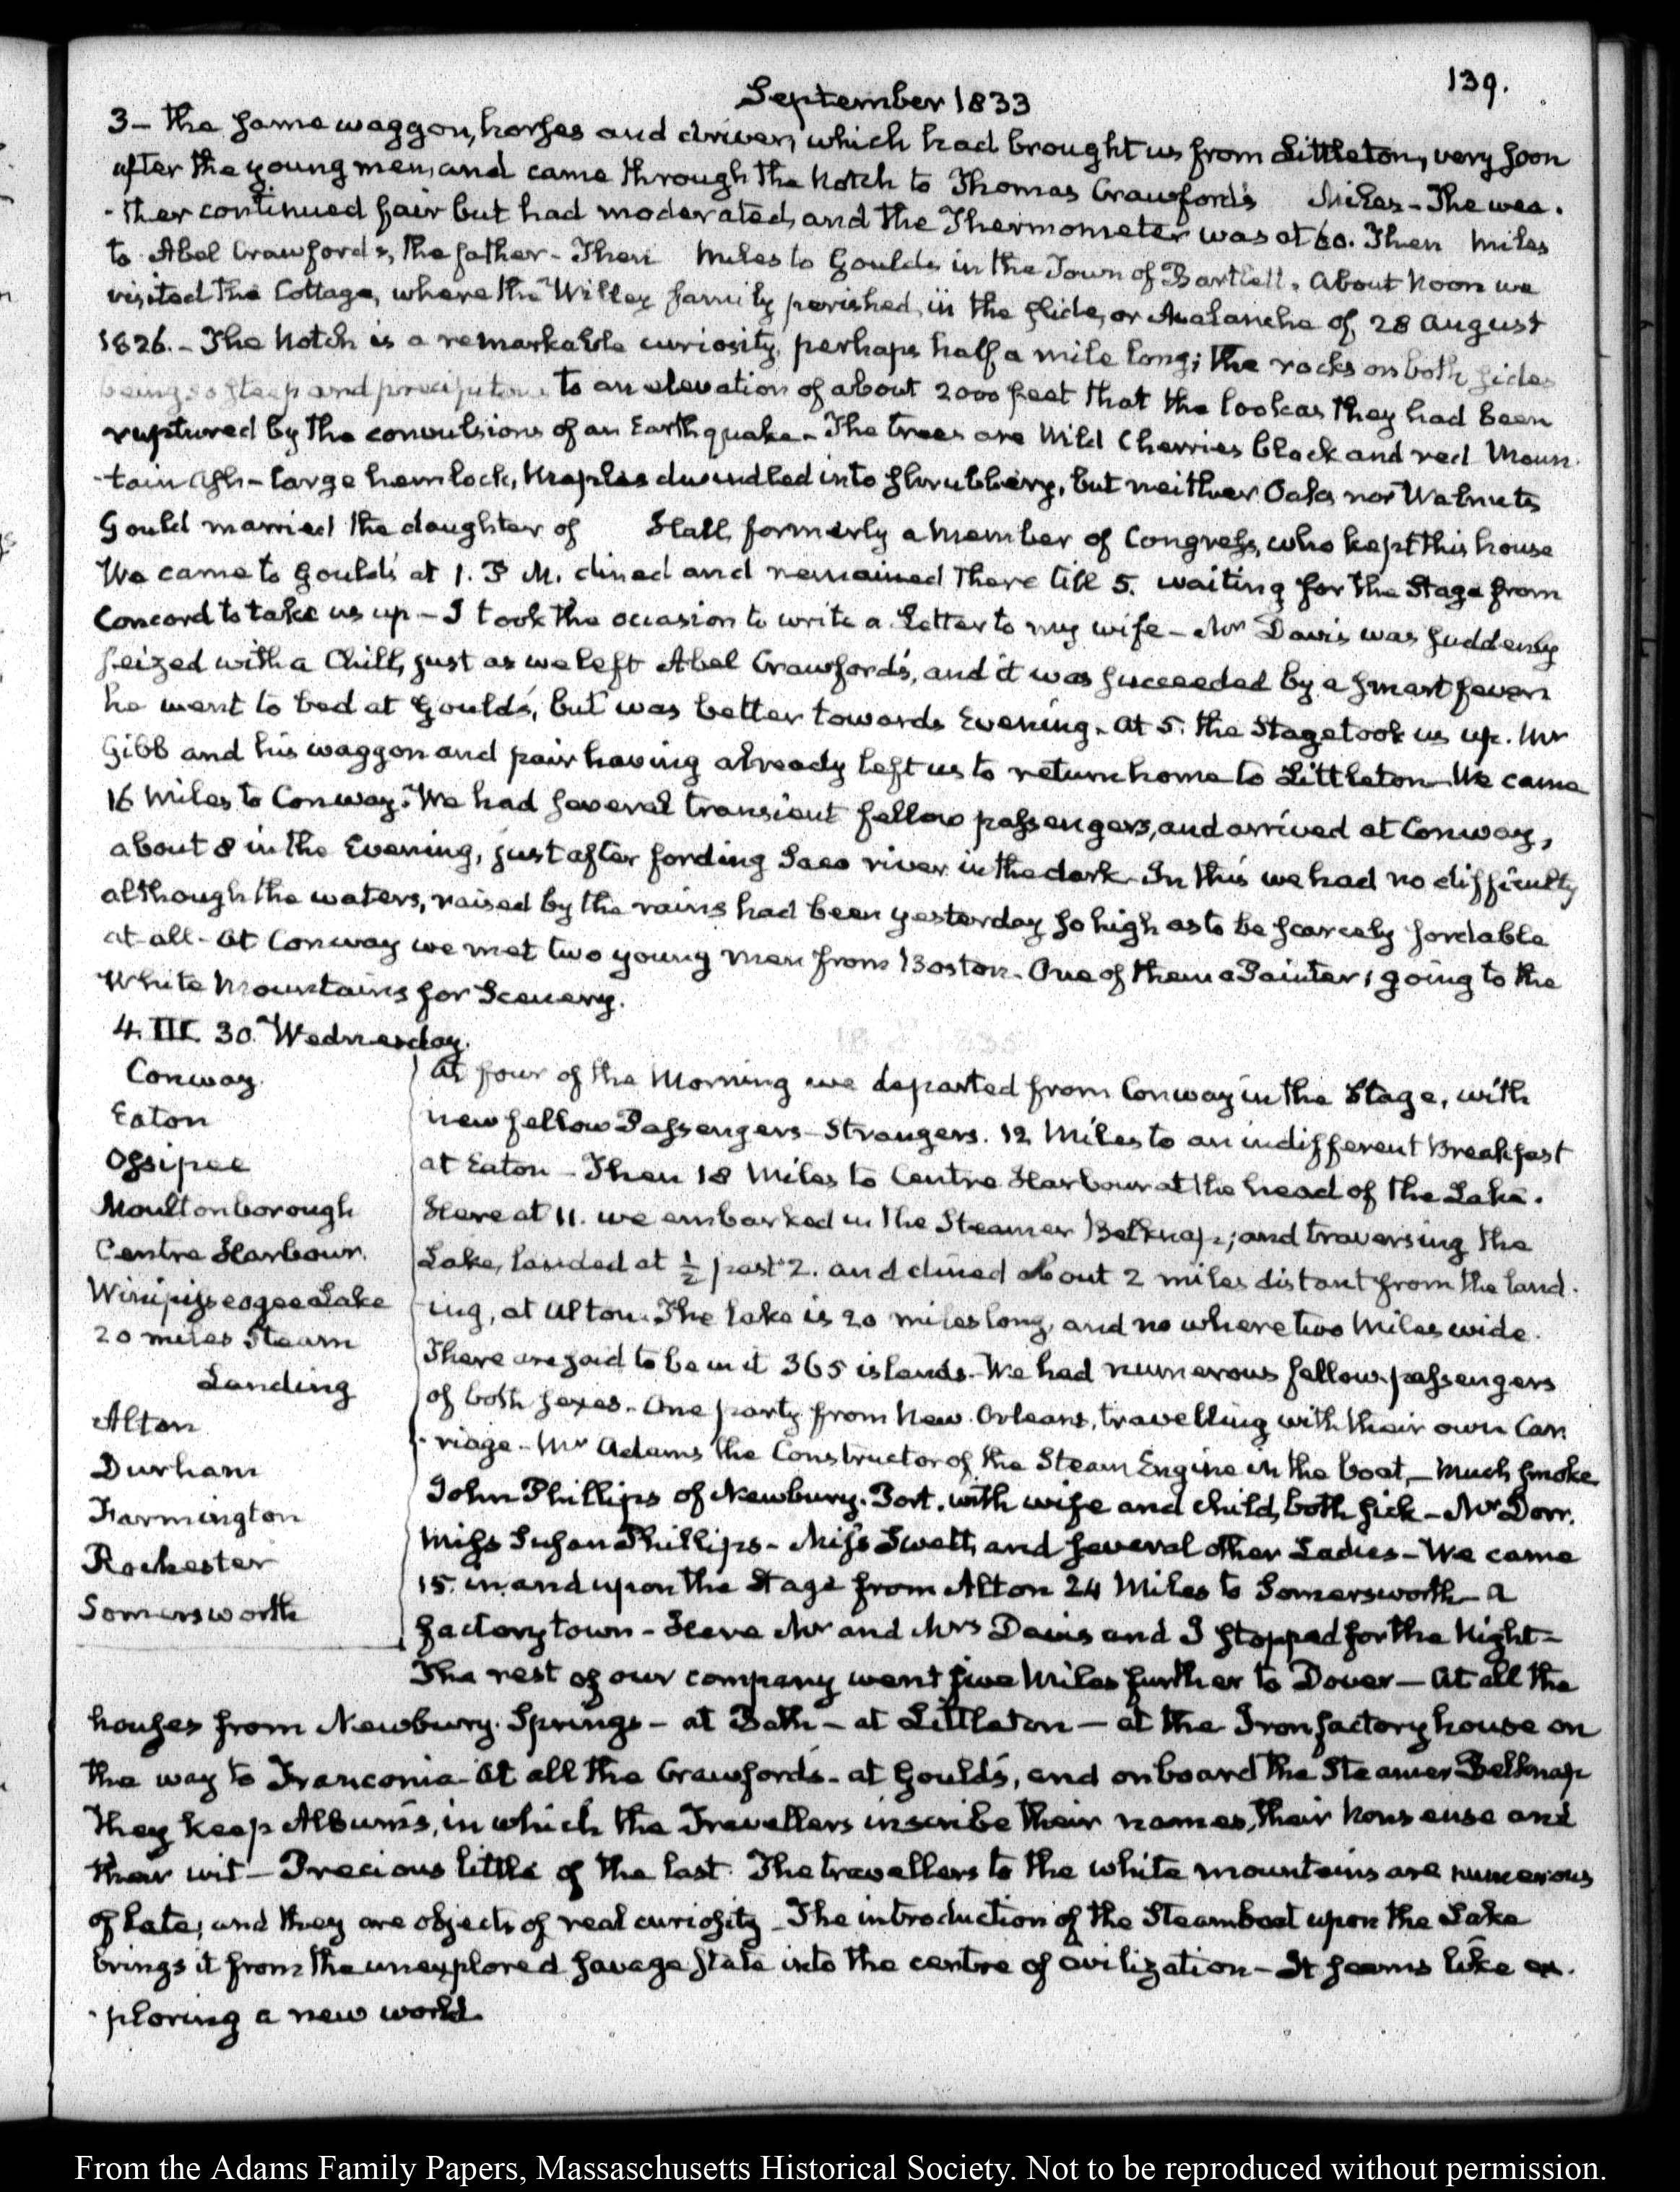 139.
September 1833
3 – the same waggon, horses and driver, which had brought us from Littleton, very soon
after the young men, and came through the Notch to Thomas Crawford's Miles – The wea-
-ther continued fair but had moderated, and the Thermometer was at 60. Then Miles
to Abel Crawford's, the father – Then Miles to Goulds in the Town of Bartlett. About Noon we
visited the Cottage, where the Willey family perished, in the slide, or Avalanche of 28 August
1826. – The Notch is a remarkable curiosity, perhaps half a mile long; the rocks on both sides
being so steep and precipitous to an elevation of about 2000 feet that the look as they had been
ruptured by the convulsions of an Earthquake – The trees are Wild Cherries black and red Moun-
-tain Ash – large hemlock, Maples dwindled into shrubbery, but neither Oaks nor Walnuts
Gould married the daughter of Hall, formerly a member of Congress, who kept this house
We came to Gould's at 1. P.M. dined and remained there till 5. waiting for the Stage from
Concord to take us up – I took the occasion to write a Letter to my wife – Mr Davis was suddenly
seized with a Chill, just as we left Abel Crawford's, and it was succeeded by a smart fever
he went to bed at Gould's, but was better towards Evening. At 5. the Stage took us up. Mr
Gibb and his waggon and pair having already left us to return home to Littleton – We came
16 Miles to Conway. We had several transient fellow passengers, and arrived at Conway,
about 8 in the Evening, just after fording Saco river in the dark – In this we had no difficulty
although the waters, raised by the rains had been yesterday so high as to be scarcely fordable
at all – At Conway we met two young men from Boston – One of them a Painter; going to the
White Mountains for Scenery.
4. III. 30. Wednesday.
Conway
Eaton
Ossipee
Moultonborough
Centre Harbour
Winipisseogee Lake
20 miles Steam
Landing
Alton
Durham
Farmington
Rochester
Somersworth
At four of the Morning we departed from Conway in the Stage, with
new fellow Passengers – Strangers. 12 Miles to an indifferent Breakfast
at Eaton – Then 18 Miles to Centre Harbour at the head of the Lake.
Here at 11. we embarked in the Steamer Belknap; and traversing the
Lake, landed at ½ past 2. and dined about 2 miles distant from the land-
ing, at Alton. The lake is 20 miles long, and no where two Miles wide.
There are said to be in it 365 islands – We had numerous fellow-passengers
of both sexes – One party from New Orleans, travelling with their own Car-
-riage – Mr Adams the Constructor of the Steam Engine in the boat, – Much smoke
John Phillips of Newbury-Port, with wife and child, both sick – Mr Dorr.
Miss Susan Phillips – Miss Swett, and several other Ladies – We came
15. in and upon the Stage from Alton 24 Miles to Somersworth – a
factory town – Here Mr and Mrs Davis and I stopped for the Night –
The rest of our company went five Miles further to Dover – At all the
houses from Newbury-Springs – at Bath – at Littleton – at the Iron factory house on
the way to Franconia – At all the Crawfords – at Gould's, and on board the Steamer Belknap
they keep Albums, in which the Travellers inscribe their names, their Nonsense and
their wit – Precious little of the last. The travellers to the white mountains are numerous
of late; and they are objects of real curiosity – The introduction of the Steamboat upon the Lake
brings it from the unexplored savage state into the centre of civilization – It seems like ex-
-ploring a new world.
From the Adams Family Papers, Massaschusetts Historical Society. Not to be reproduced without permission.